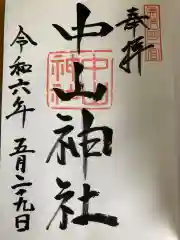 奉拝
中山神社
中山
神社
令和六年 五月二十九日